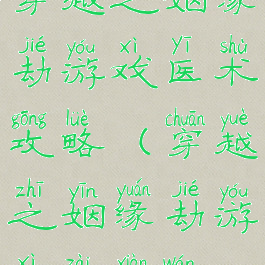 穿越之姻缘
jié yóu xì yī shù
劫游戏医术
gōng lüè chuān yuè
攻略（穿越
zhī yīn yuán jié yóu
之姻缘劫游
xì zài xiàn wán